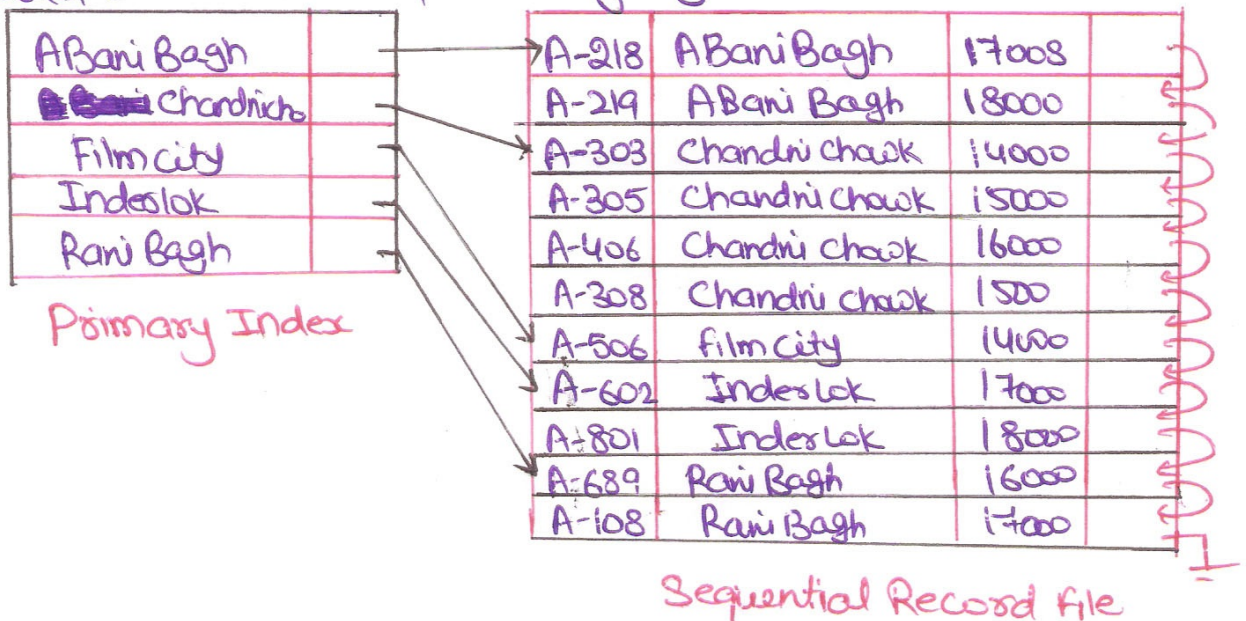 ABani Bagh
Chandnicho
Film city
Inderlok
Rani Bagh
Primary Index
A-218 ABani Bagh 17008
A-219 ABani Bagh 18000
A-303 Chandni Chowk 14000
A-305 Chandni Chowk 15000
A-406 Chandni Chowk 16000
A-308 Chandni Chowk 1500
A-506 film City 14000
A-602 Inderlok 17000
A-801 InderLok 18000
A-689 Rani Bagh 16000
A-108 Rani Bagh 17000
Sequential Record File